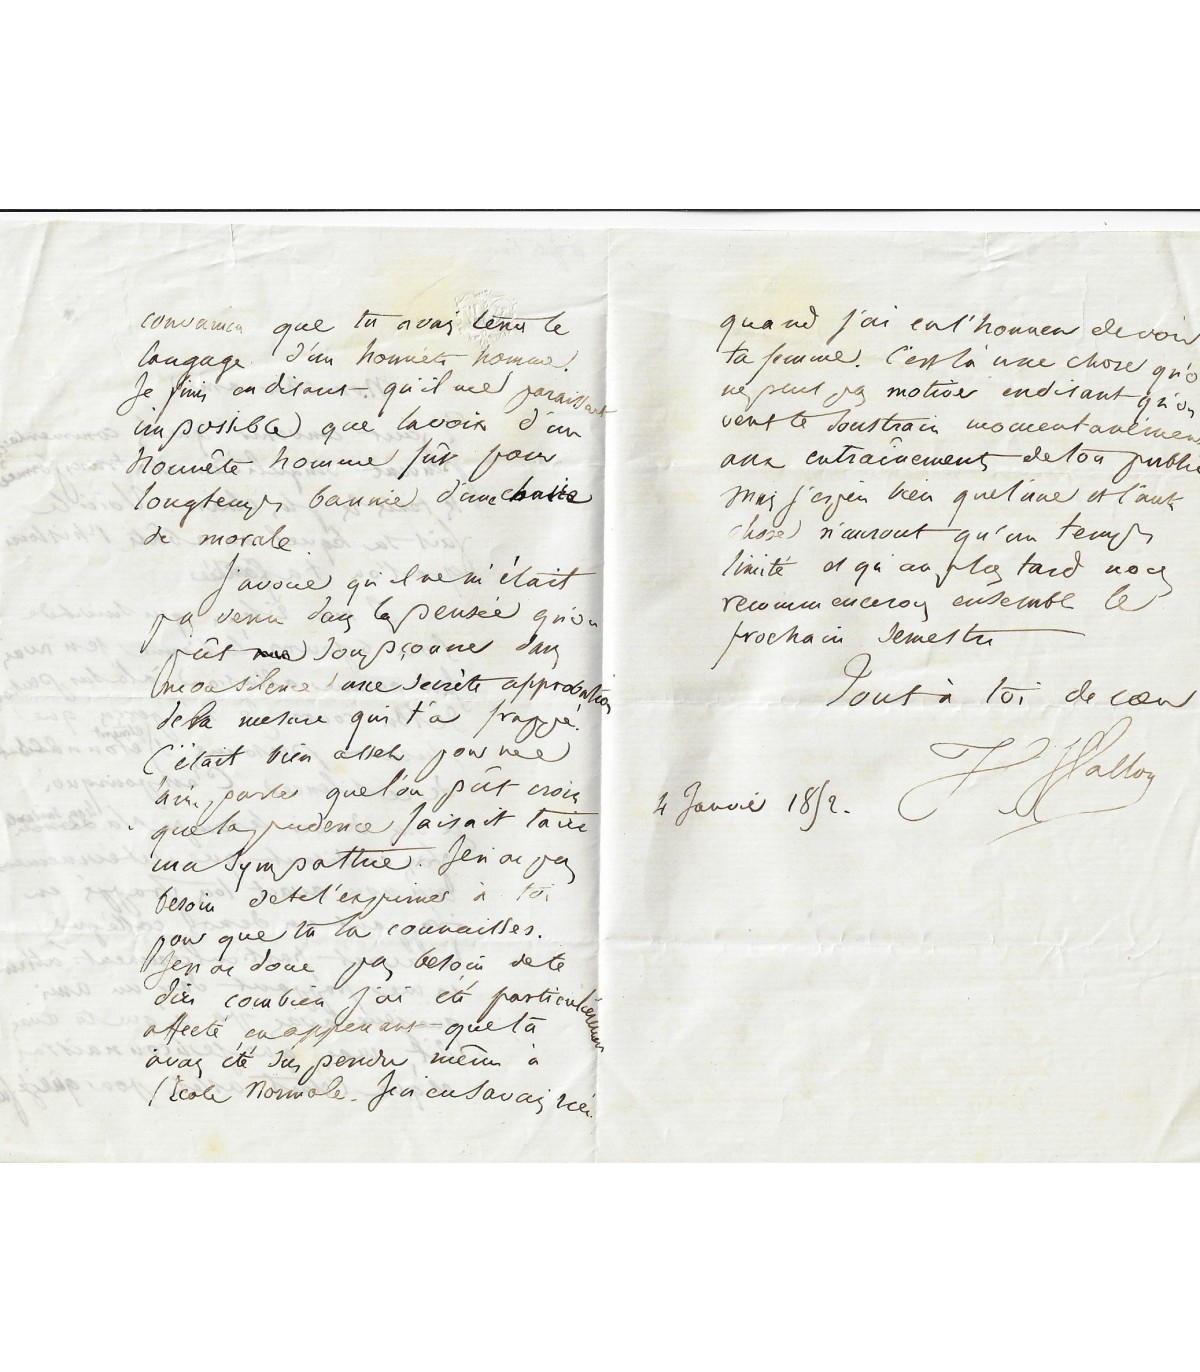 convaincu que tu avais tenu le
langage d'un honnête homme.
Je finis en disant qu'il me paraissait
impossible que la voix d'un
honnête homme fût pour
longtemps bannie d'une chaire
de morale.
J'avoue qu'il ne m'était
pas venu dans la pensée qu'on
pût soupçonner dans
mon silence une secrète approbation
de la mesure qui t'a frappé.
C'était bien assez pour me
que l'on pût croire
que la prudence faisait taire
ma sympathie. Je n'ai pas
besoin de te l'exprimer à toi
pour que tu la connaisses.
Je n'ai donc pas besoin de te
dire combien j'ai été particulièrement
affecté en apprenant que tu
avais été suspendu même à
l'Ecole Normale. Je n'en savais rien
quand j'ai eu l'honneur de voir
ta femme. C'est là une chose qu'o
ne peut pas motiver en disant qu'on
veut te soustraire momentanément
aux entraînements de ton public
Mais j'espère bien que l'une et l'autre
chose n'auront qu'un temps
limité et qu'au plus tard nous
recommencerons ensemble le
prochain semestre
Tout à toi de cœur
H Wallon
4 Janvier 1852.